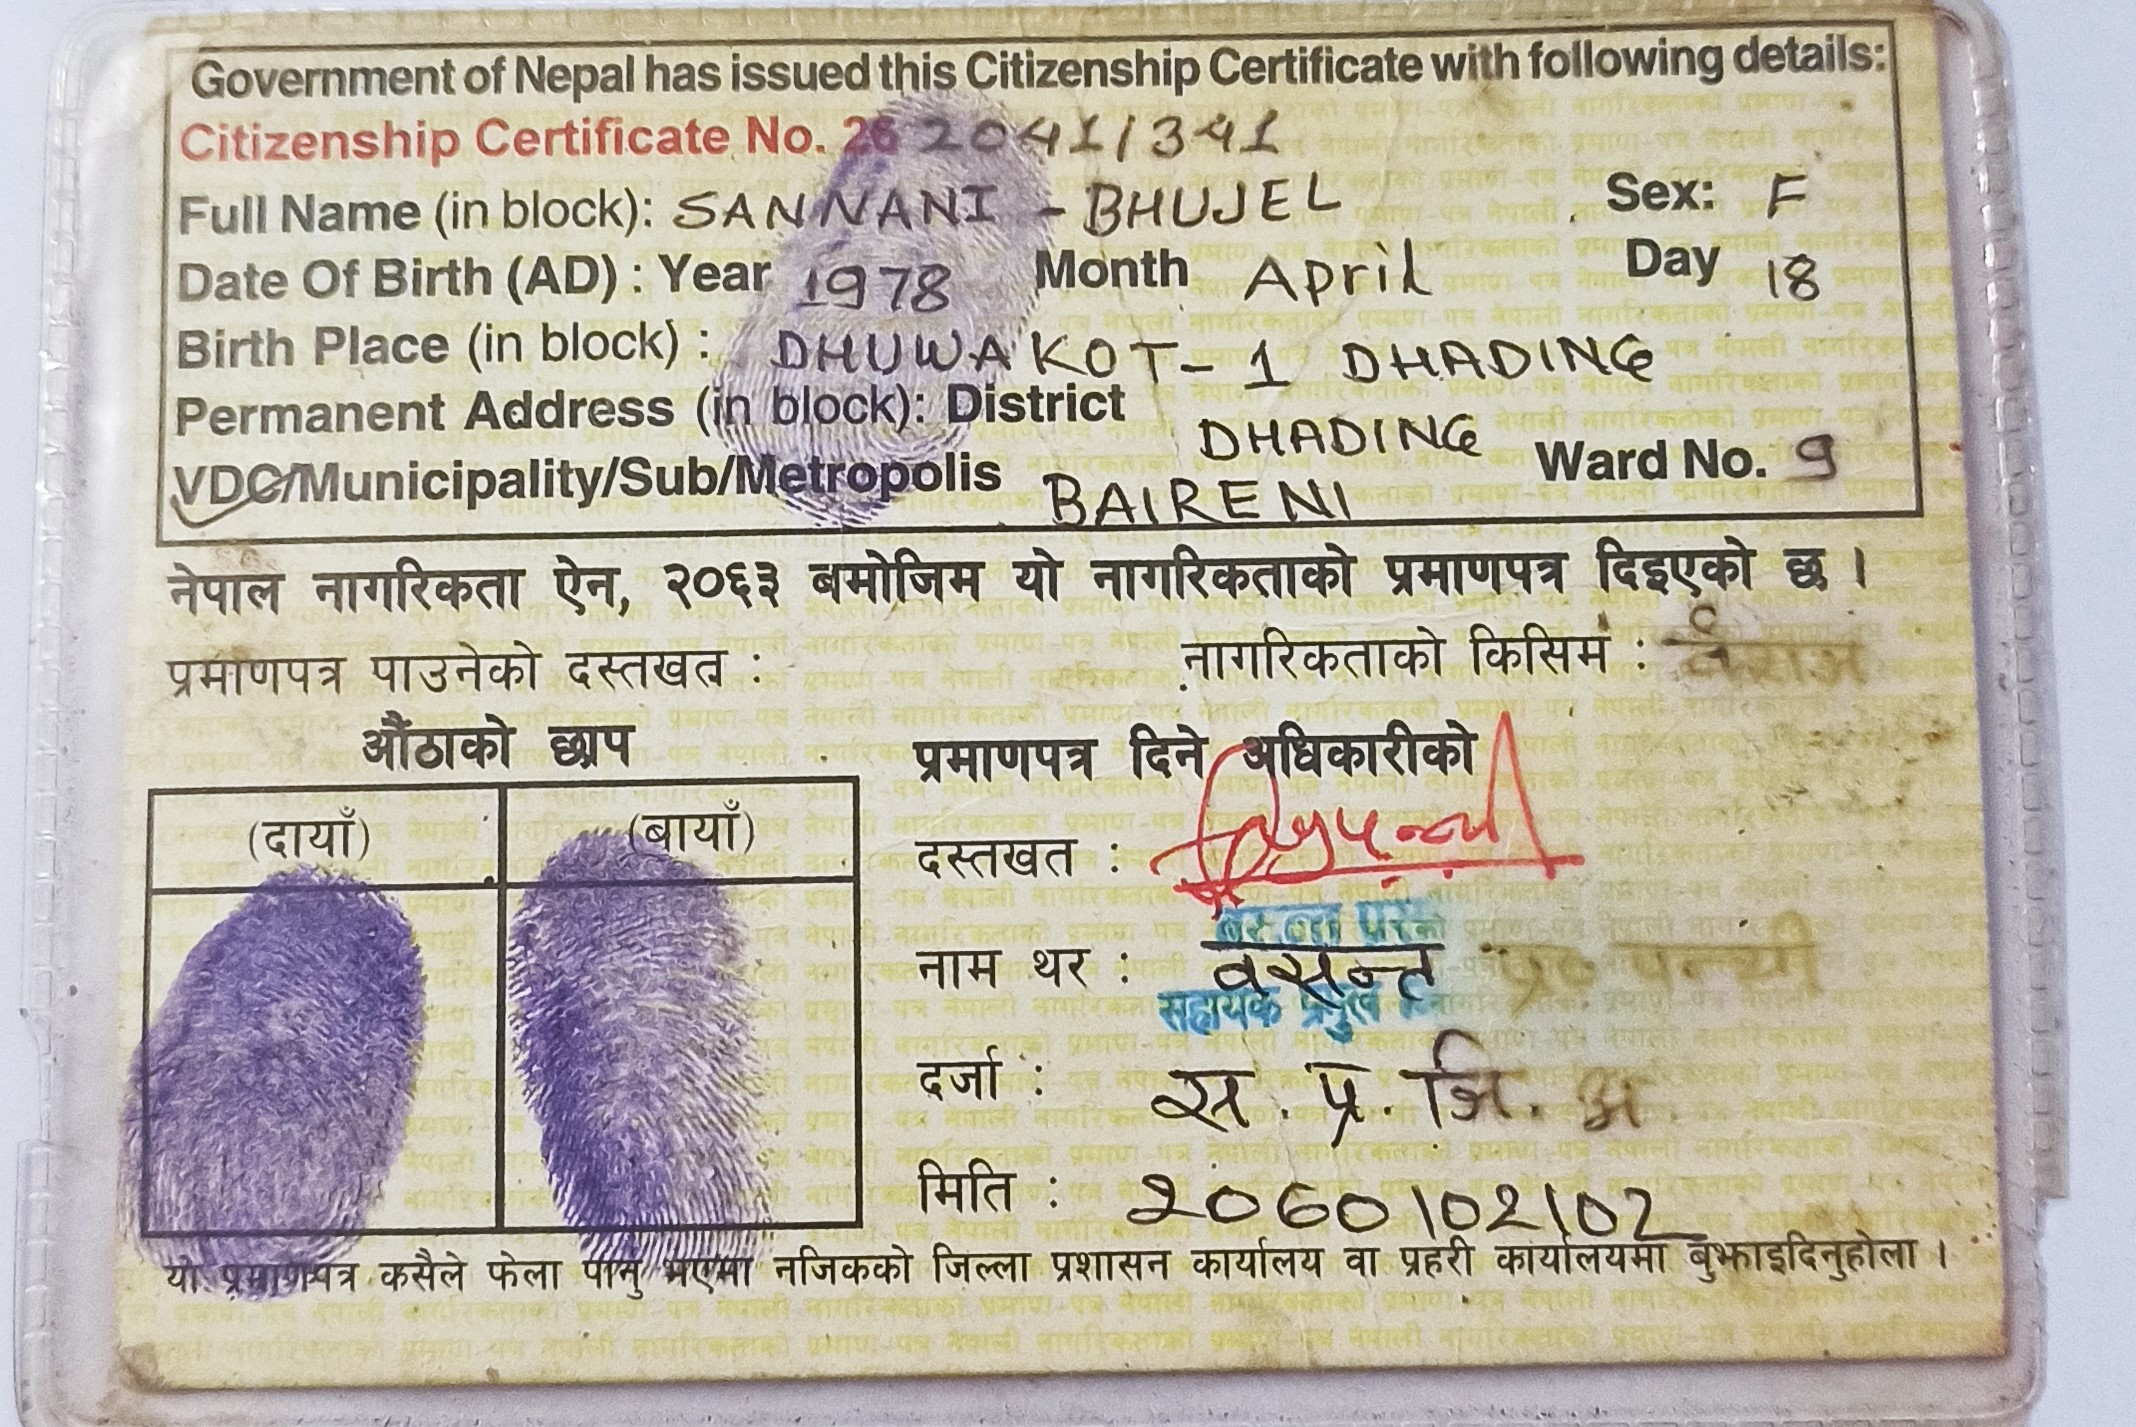 Government of Nepal has issued this Citizenship Certificate with following details:
Citizenship Certificate No. 26 2041/341
Full Name (in block): SANNANI - BHUJEL Sex: F
Date Of Birth (AD) : Year 1978 Month April Day 18
Birth Place (in block) : DHUWAKOT - 1 DHADING
Permanent Address (in block): District DHADING
VDC/Municipality/Sub/Metropolis BAIRENI Ward No. 9
नेपाल नागरिकता ऐन, २०६३ बमोजिम यो नागरिकताको प्रमाणपत्र दिइएको छ ।
प्रमाणपत्र पाउनेको दस्तखत : नागरिकताको किसिम :
औंठाको छाप
(दायाँ) (बायाँ)
प्रमाणपत्र दिने अधिकारीको
दस्तखत :
नाम थर : वसन्त
सहायक प्रमुख
दर्जा : स. प्र. जि. अ
मिति : 2060/02/02
यो प्रमाणपत्र कसैले फेला पार्नु भएमा नजिकको जिल्ला प्रशासन कार्यालय वा प्रहरी कार्यालयमा बुझाइदिनुहोला ।